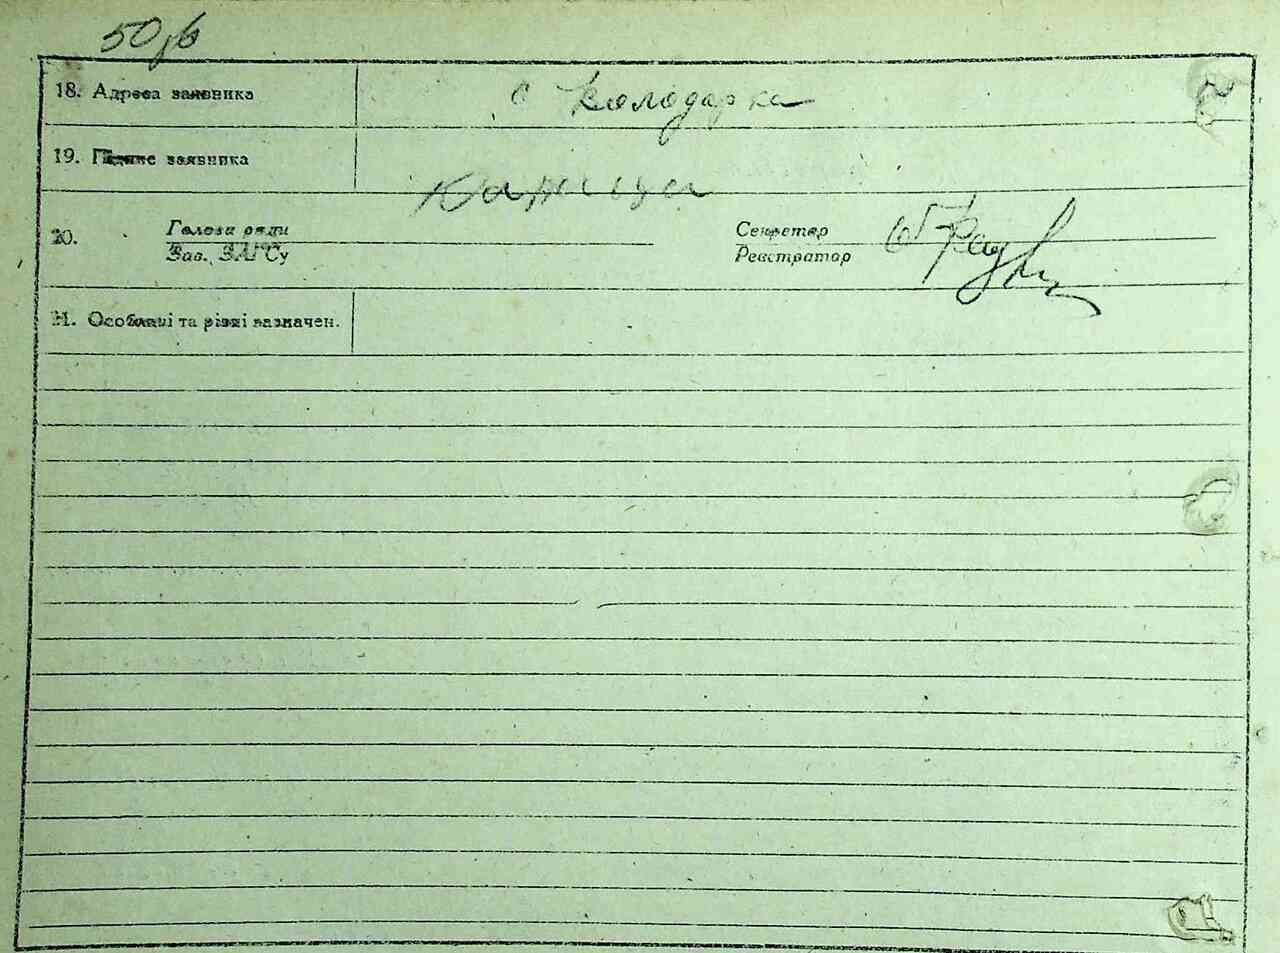 50зв
18. Адреса заявника с Колодарка
19. Підпис заявника
20. Голова ради Секретар
Зав. ЗАГСу Реєстратор
21. Особливі та різні зазначен.